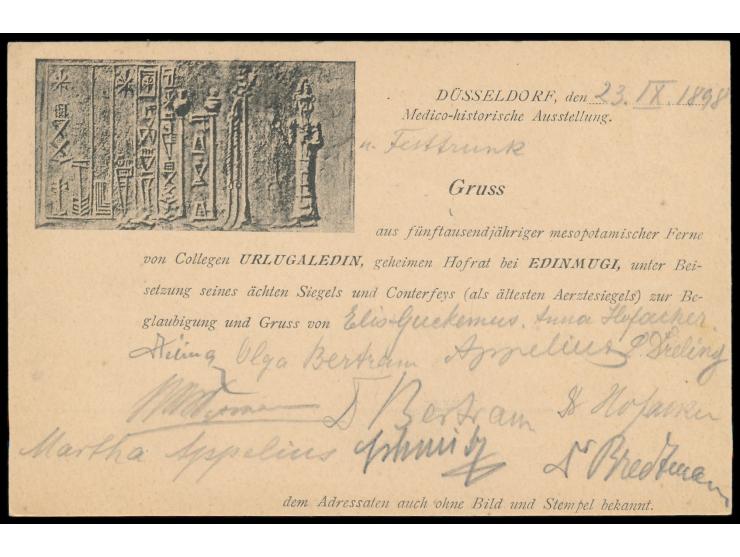 DÜSSELDORF, den 23. IX. 1898
Medico-historische Ausstellung.
u. Festtrunk
Gruss
aus fünftausendjähriger mesopotamischer Ferne
von Collegen URLUGALEDIN, geheimen Hofrat bei EDINMUGI, unter Bei-
setzung seines ächten Siegels und Conterfeys (als ältesten Aerztesiegels) zur Be-
glaubigung und Gruss von Elis Guckemus. Anna Hofacker.
Olga Bertram Appelius
Dr Bertram Dr Hofacker
Martha Appelius Schmitz Dr Bredtmann
dem Adressaten auch ohne Bild und Stempel bekannt.